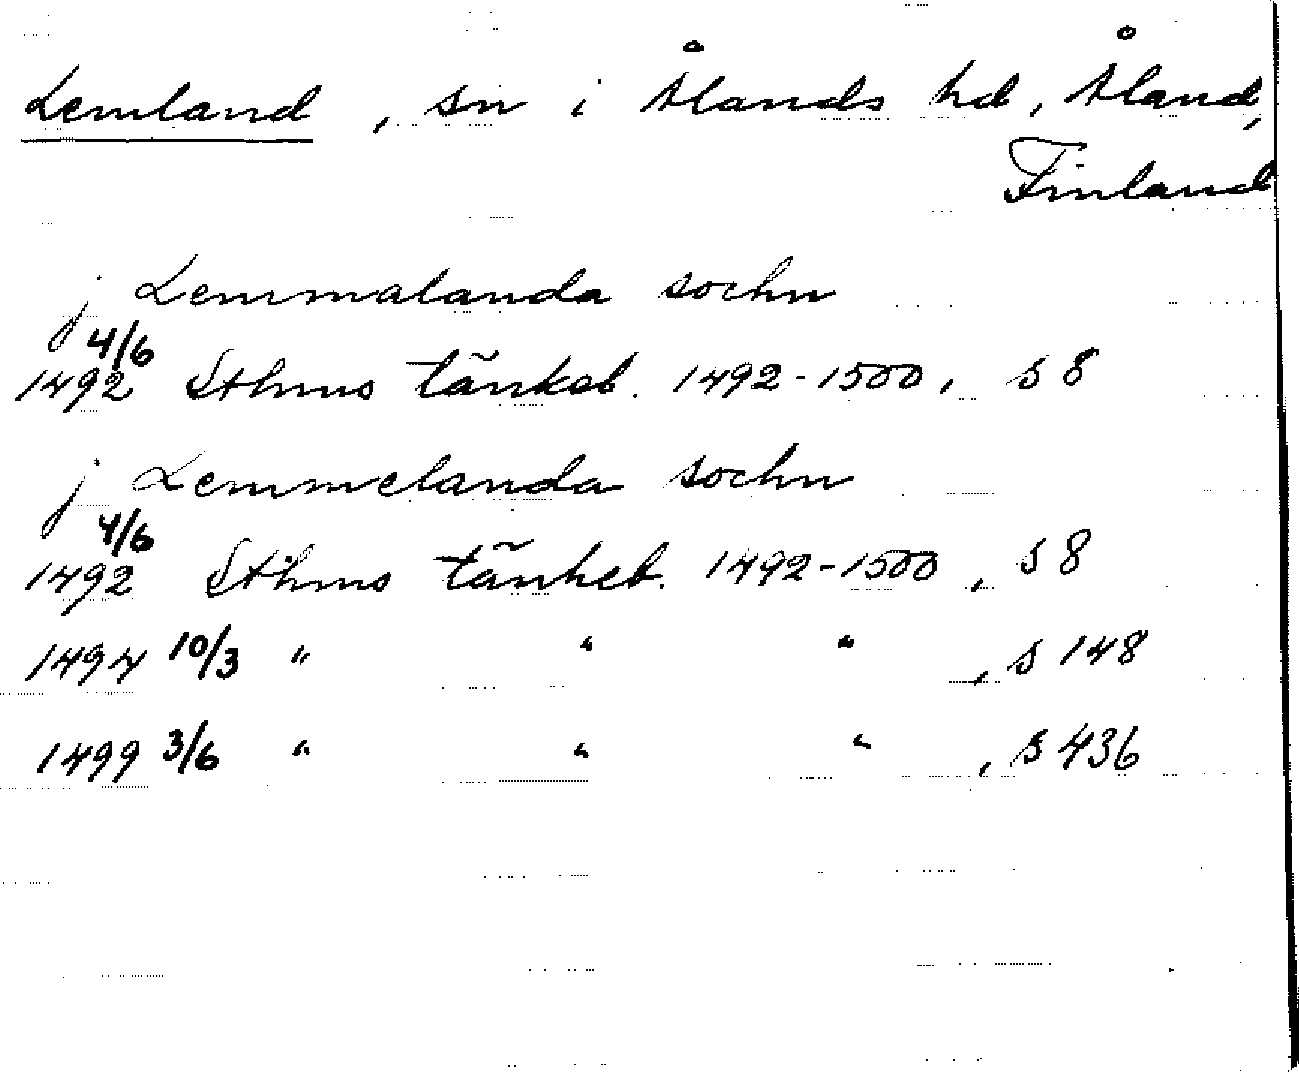 Lemland, sn i Ålands hd, Åland,
Finland
j Lemmalanda sochn
4/6
1492 Sthms tänkeb. 1492-1500, s 8
j Lemmelanda sochn
4/6
1492 Sthms tänkeb. 1492-1500, s 8
1494 10/3 " " " , s 148
1499 3/6 " " " , s 436